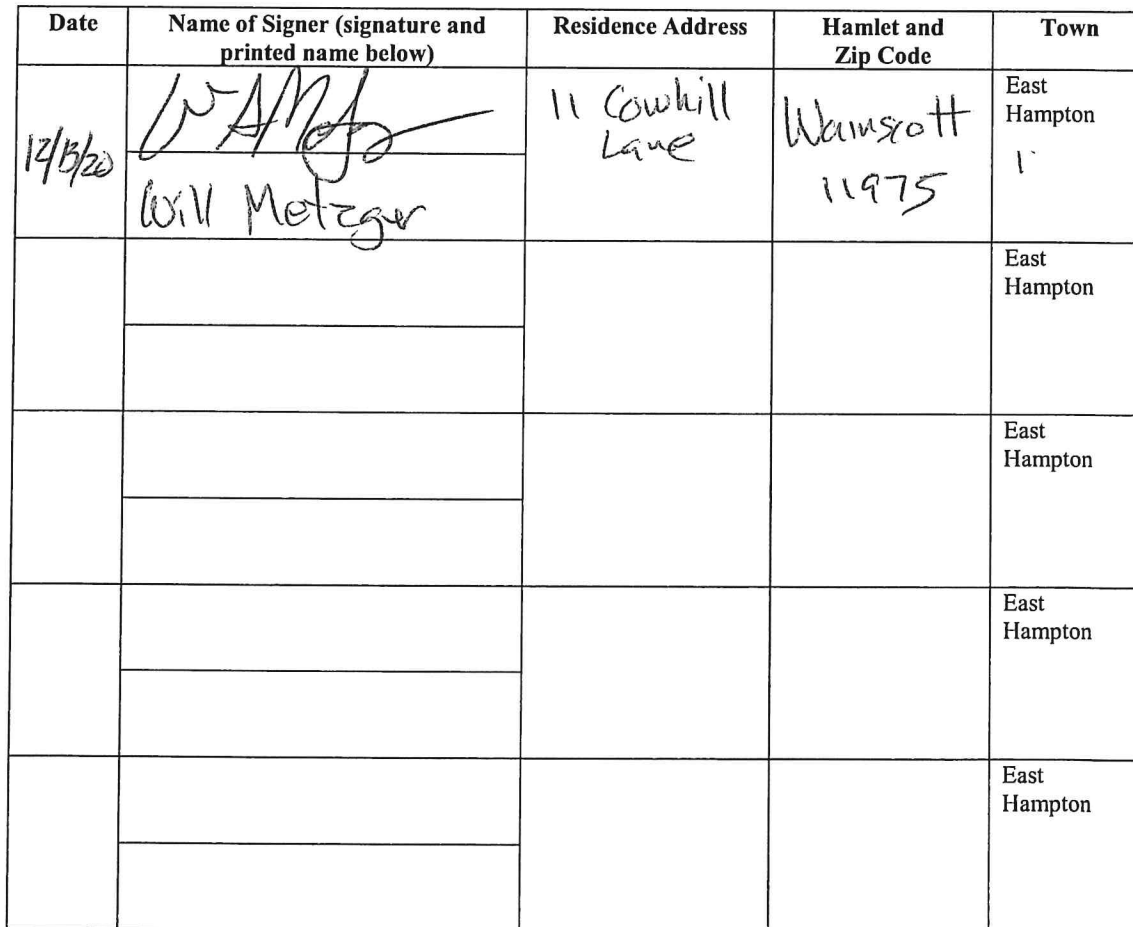 Date
Name of Signer (signature and
printed name below)
Residence Address
Hamlet and
Zip Code
Town
12/13/20
Will Metzger
11 Cowhill
Lane
Wainscott
11975
East
Hampton
East
Hampton
East
Hampton
East
Hampton
East
Hampton